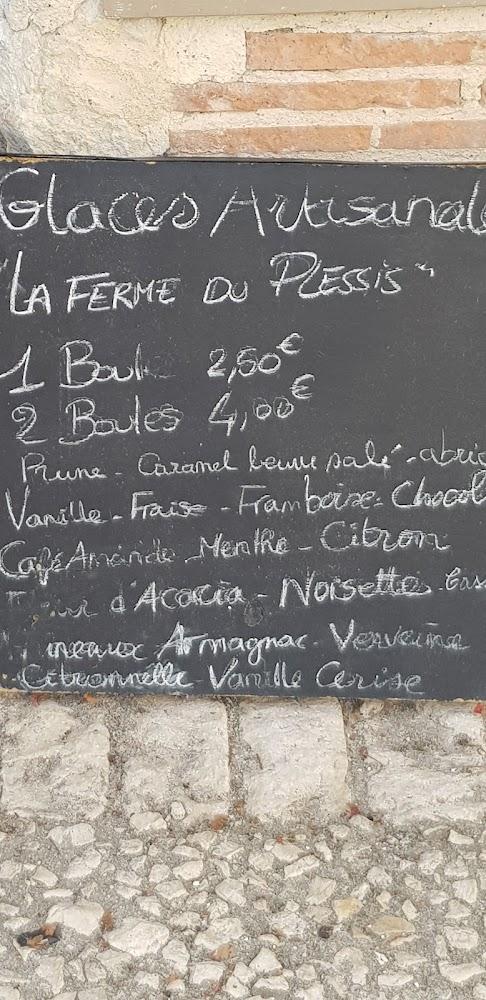 Glaces Artisanale
"LA FERME DU PLESSIS"
1 Boule 2,50€
2 Boules 4,00€
Prune - Caramel beurre salé - abric
Vanille - Fraise - Framboise - Chocol
Café Amande - Menthe - Citron
d'Acacia - Noisettes - Cass
neaux Armagnac - Verveine
Citronnelle - Vanille Cerise